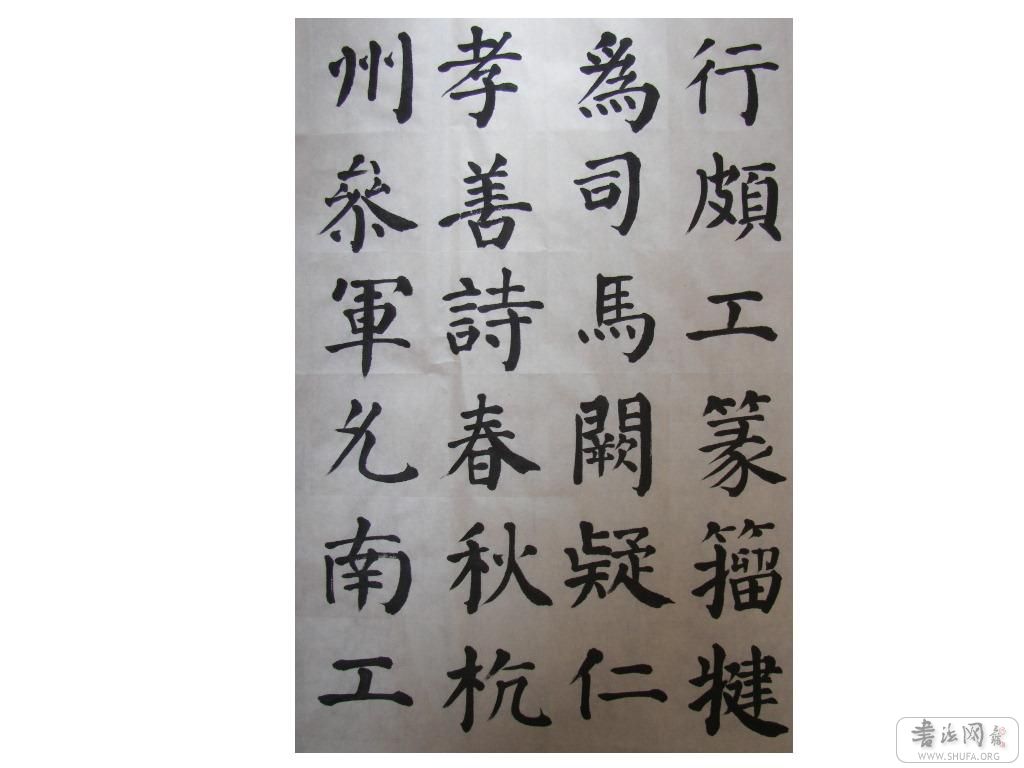 行頗工篆籀犍
為司馬闕疑仁
孝善詩春秋杭
州叅軍允南工
書法网
WWW.SHUFA.ORG